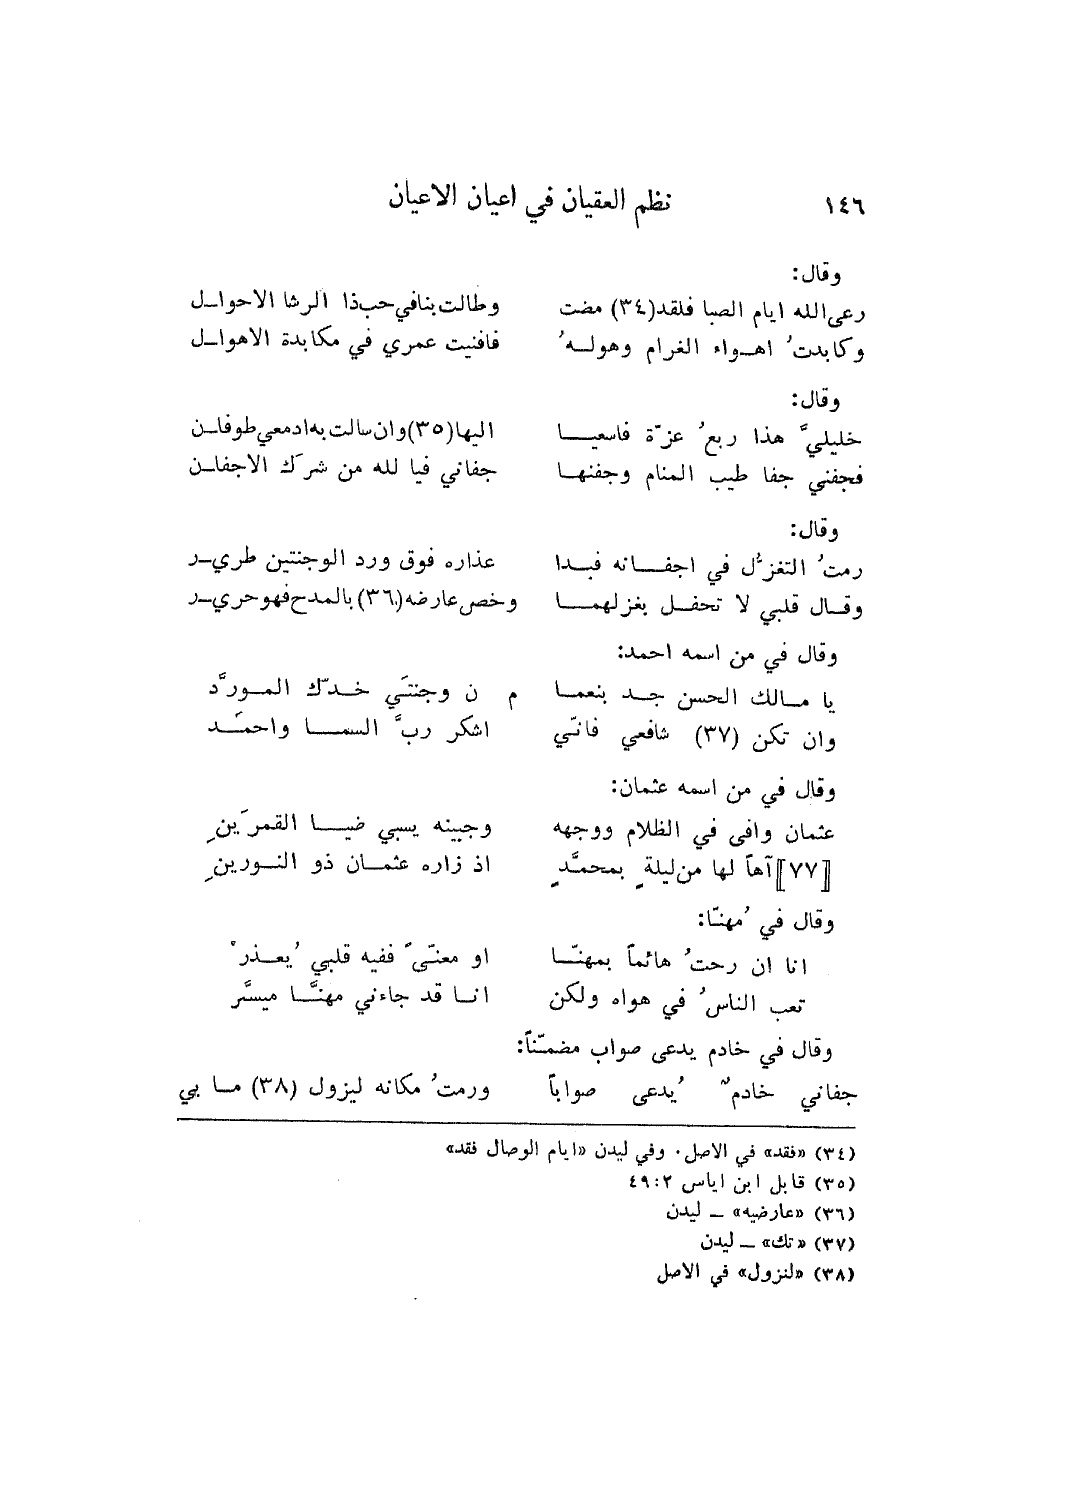 ١٤٦ نظم العقيان في اعيان الاعيان
وقال:
رعى الله ايام الصبا فلقد(٣٤) مضت وطالت بنا في حب ذا الرشا الاحوال
وكابدتُ اهواء الغرام وهولهُ فافنيت عمري في مكابدة الاهوال
وقال:
خليليَّ هذا ربعُ عزّة فاسعيا اليها(٣٥) وان سالت به ادمعي طوفان
فجفني جفا طيب المنام وجفنها جفاني فيا لله من شرَك الاجفان
وقال:
رمتُ التغزُّل في اجفانه فبدا عذاره فوق ورد الوجنتين طرير
وقال قلبي لا تحفل بغزلهما وخص عارضه(٣٦) بالمدح فهو حرير
وقال في من اسمه احمد:
يا مالك الحسن جد بنعما م ن وجنتَي خدّك المورَّد
وان تكن (٣٧) شافعي فانّي اشكر ربَّ السما واحمَد
وقال في من اسمه عثمان:
عثمان وافى في الظلام ووجهه وجبينه يسبي ضيا القمرَينِ
[٧٧] آهاً لها من ليلةٍ بمحمَّدٍ اذ زاره عثمان ذو النورينِ
وقال في مُهنّا:
انا ان رحتُ هائماً بمهنّا او معنّىً ففيه قلبي يُعذرْ
تعب الناسُ في هواه ولكن انا قد جاءني مهنَّا ميسَّر
وقال في خادم يدعى صواب مضمّناً:
جفاني خادمٌ يُدعى صواباً ورمتُ مكانه ليزول (٣٨) ما بي
(٣٤) «فقد» في الاصل. وفي ليدن «ايام الوصال فقد»
(٣٥) قابل ابن اياس ٢:٤٩
(٣٦) «عارضيه» — ليدن
(٣٧) «تك» — ليدن
(٣٨) «لنزول» في الاصل